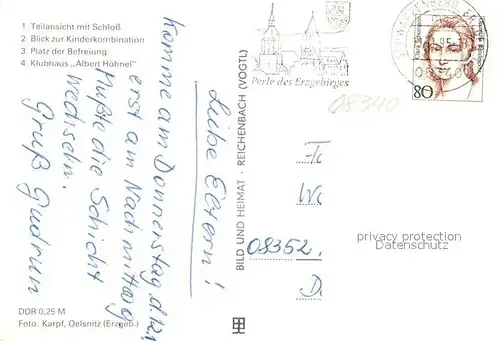 1 Teilansicht mit Schloß
2 Blick zur Kinderkombination
3 Platz der Befreiung
4 Klubhaus „Albert Hähnel"
Liebe Eltern!
Komme am Donnerstag d.12.1.
erst am Nachmittag
Mußte die Schicht
wechseln.
Gruß Gudrun
DDR 0,25 M
Foto. Karpf, Oelsnitz (Erzgeb.)
BILD UND HEIMAT · REICHENBACH (VOGTL)
Perle des Erzgebirges
80
08340
08352
privacy protection
Datenschutz